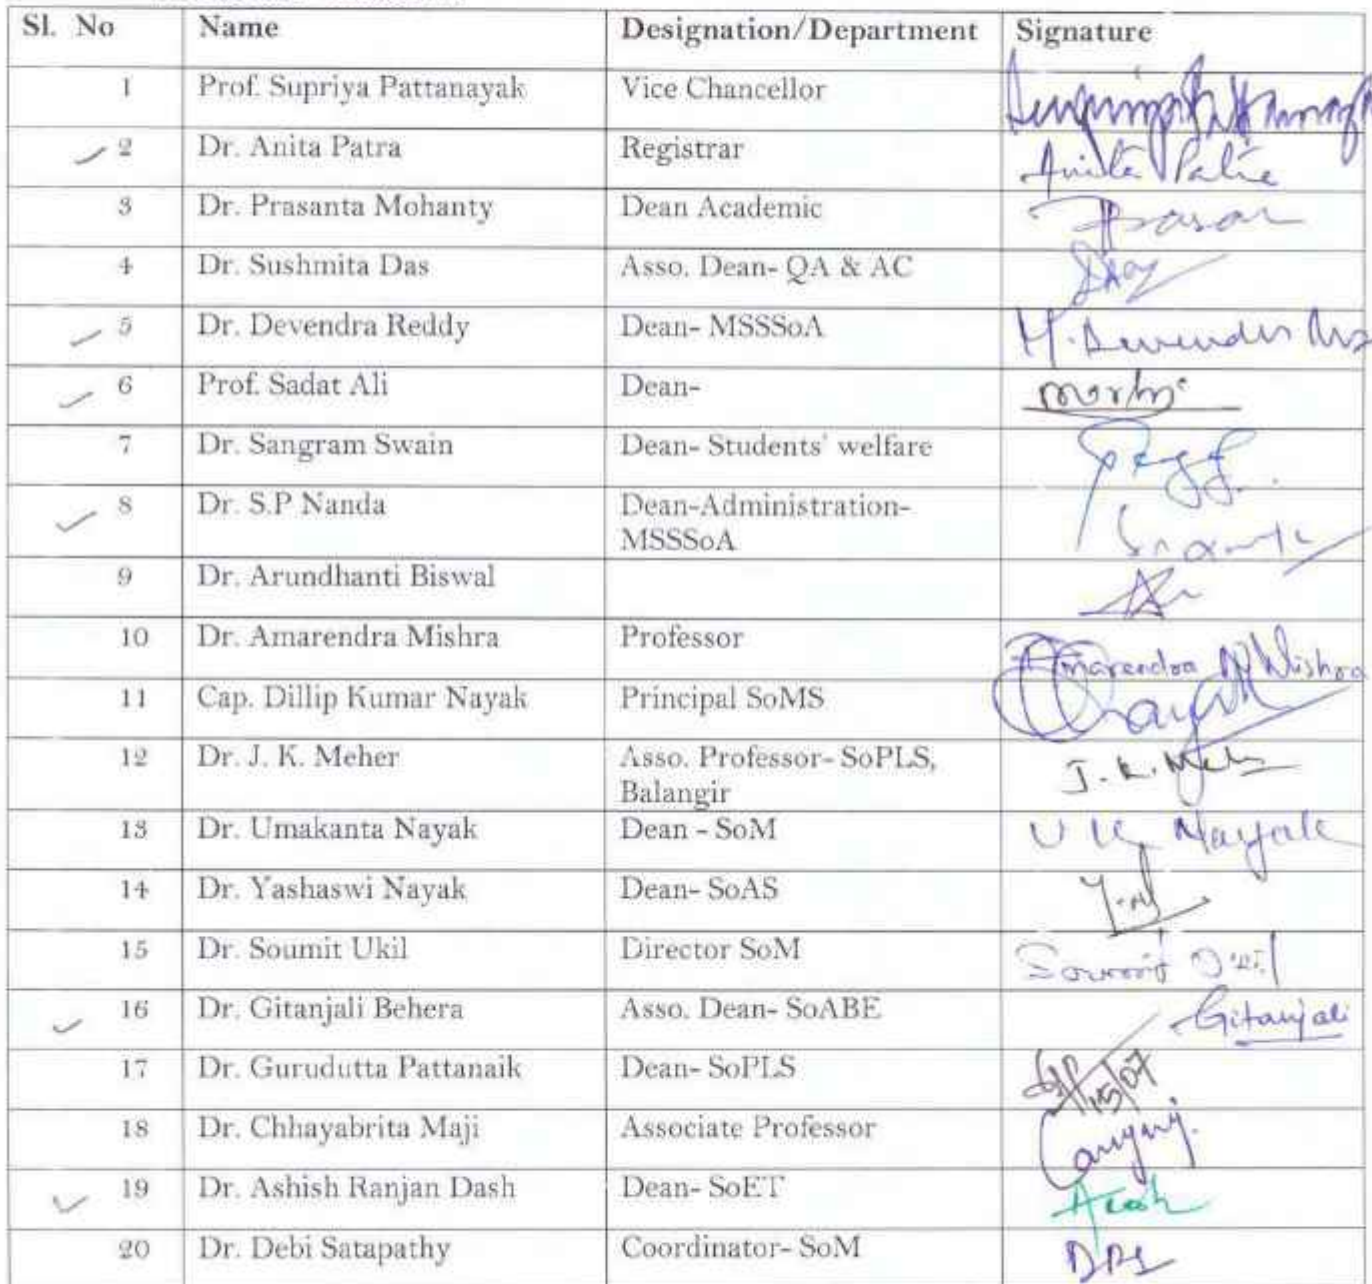 Sl. No Name Designation/Department Signature
1 Prof. Supriya Pattanayak Vice Chancellor
2 Dr. Anita Patra Registrar Anita Patra
3 Dr. Prasanta Mohanty Dean Academic
4 Dr. Sushmita Das Asso. Dean- QA & AC
5 Dr. Devendra Reddy Dean- MSSSoA
6 Prof. Sadat Ali Dean-
7 Dr. Sangram Swain Dean- Students' welfare
8 Dr. S.P Nanda Dean-Administration-
MSSSoA
9 Dr. Arundhanti Biswal
10 Dr. Amarendra Mishra Professor Amarendra Mishra
11 Cap. Dillip Kumar Nayak Principal SoMS
12 Dr. J. K. Meher Asso. Professor- SoPLS, J. K. Meher
Balangir
13 Dr. Umakanta Nayak Dean - SoM U K Nayak
14 Dr. Yashaswi Nayak Dean- SoAS
15 Dr. Soumit Ukil Director SoM
16 Dr. Gitanjali Behera Asso. Dean- SoABE Gitanjali
17 Dr. Gurudutta Pattanaik Dean- SoPLS 15/07
18 Dr. Chhayabrita Maji Associate Professor
19 Dr. Ashish Ranjan Dash Dean- SoET
20 Dr. Debi Satapathy Coordinator- SoM